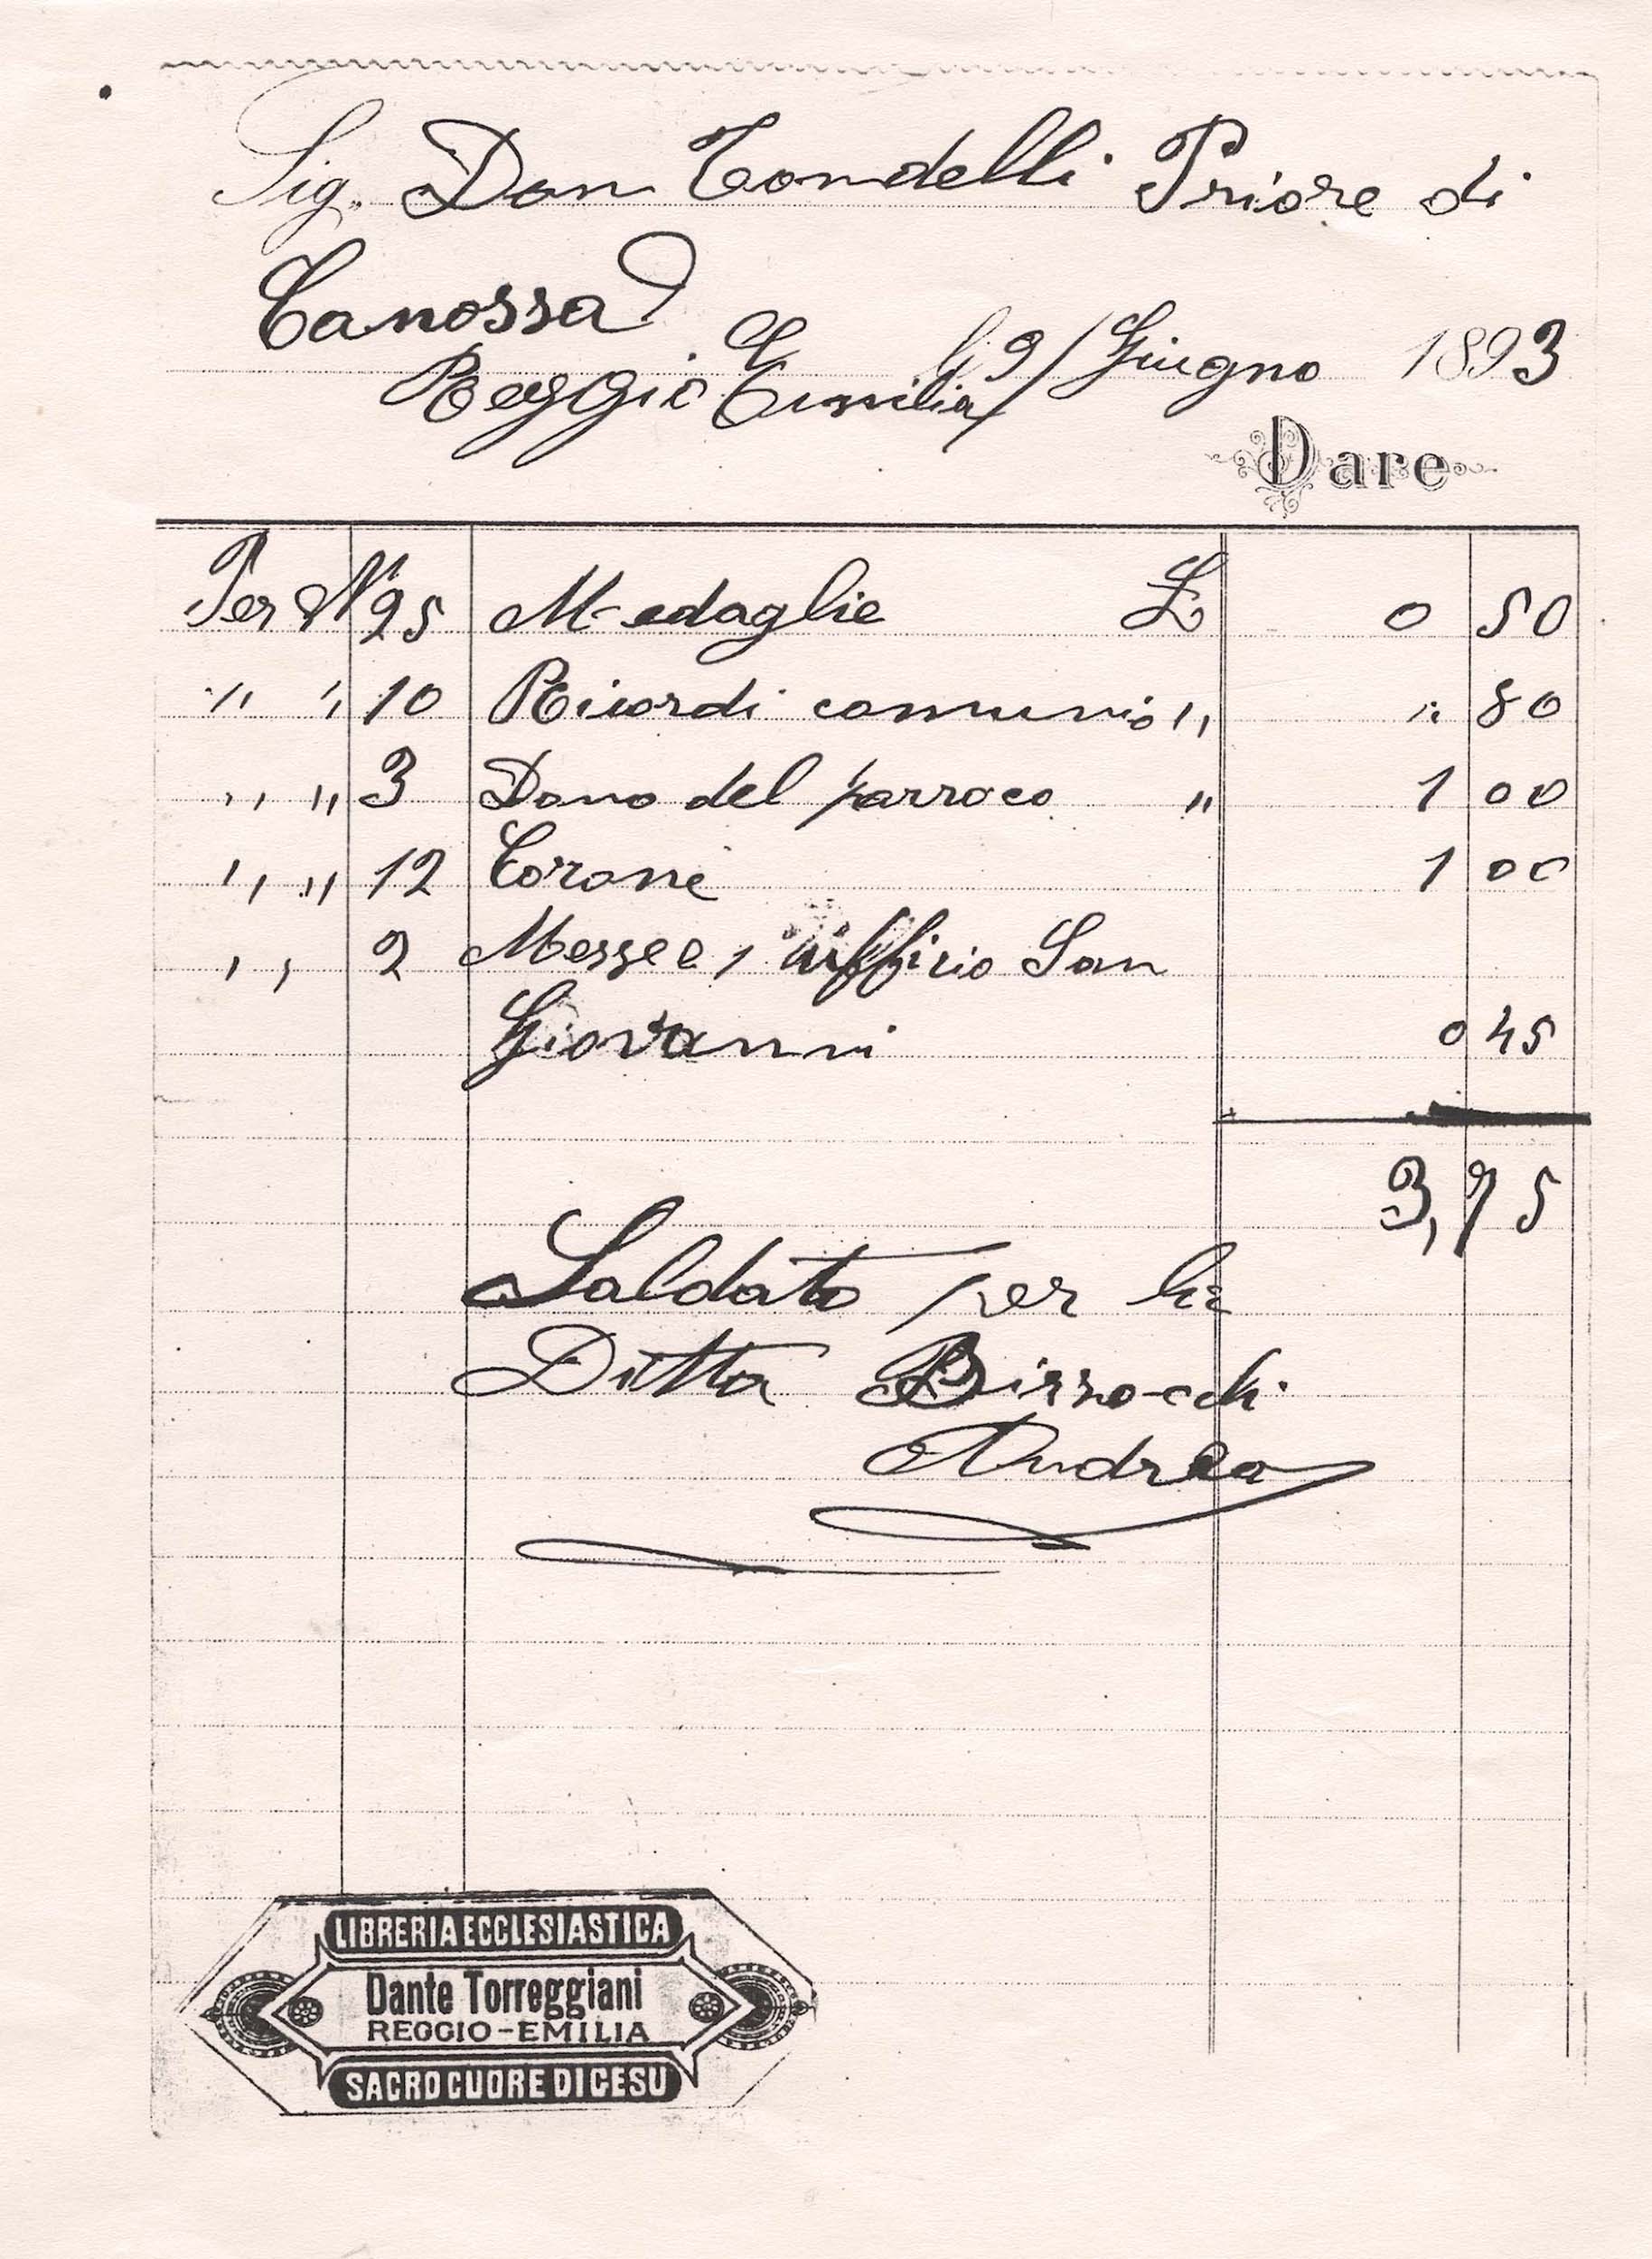 Sig. Don Tondelli Priore di
Canossa
Reggio Emilia li 9/ Giugno 1893
Dare
Per N° 25 Medaglie £ 0 50
" " 10 Ricordi comunio " " 80
" " 3 Dono del parroco " 1 00
" " 12 Corone 1 00
" 2 Messe e 1 uffizio San
Giovanni 0 45
3,75
Saldato per la
Ditta Bizzocchi
Andrea
LIBRERIA ECCLESIASTICA
Dante Torreggiani
REGGIO-EMILIA
SACRO CUORE DI GESU